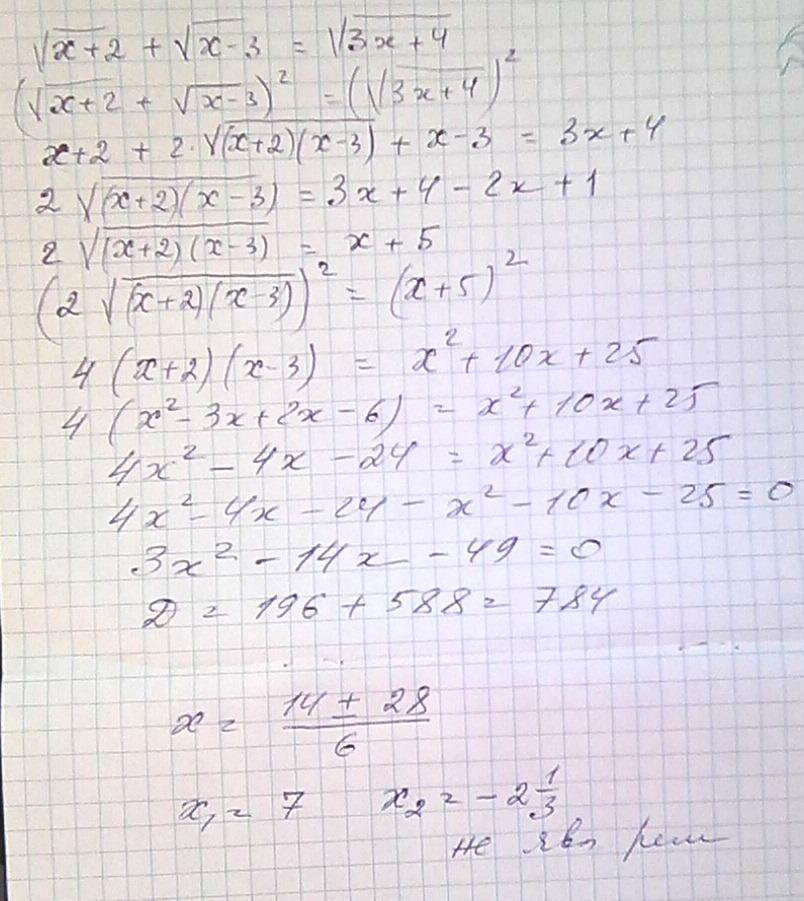 √x+2 + √x-3 = √3x+4
(√x+2 + √x-3)² = (√3x+4)²
x+2 + 2·√(x+2)(x-3) + x-3 = 3x+4
2 √(x+2)(x-3) = 3x+4 - 2x+1
2 √(x+2)(x-3) = x+5
(2 √(x+2)(x-3))² = (x+5)²
4 (x+2)(x-3) = x²+10x+25
4 (x²-3x+2x-6) = x²+10x+25
4x²-4x-24 = x²+10x+25
4x²-4x-24-x²-10x-25=0
3x²-14x-49=0
D = 196+588=784
x = (14±28)/6
x₁=7 x₂=-2 1/3
не явл реш